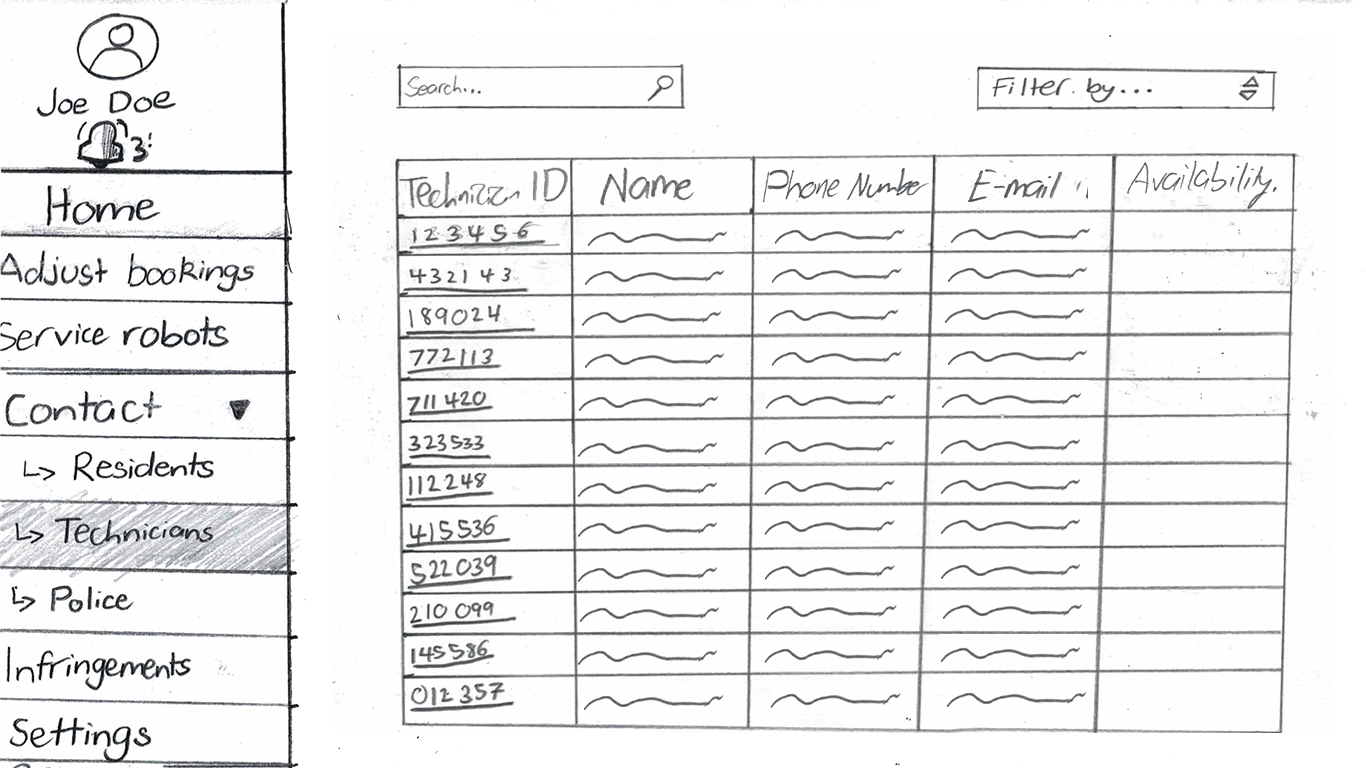 Joe Doe
3
Home
Adjust bookings
Service robots
Contact
Residents
Technicians
Police
Infringements
Settings
Search...
Filter by...
Technician ID Name Phone Number E-mail Availability.
123456
432143
189024
772113
711420
323533
112248
415536
522039
210099
145586
012357